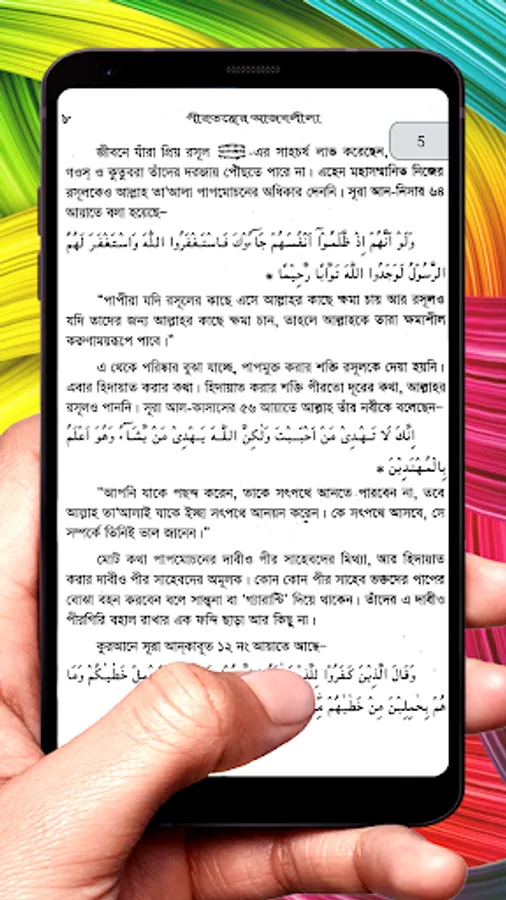 ৮
পীরতন্ত্রের আজবলীলা
5
জীবনে যাঁরা প্রিয় রসূল -এর সাহচর্য লাভ করেছেন,
গওস্ ও কুতুবরা তাঁদের দরজায় পৌঁছতে পারে না। এহেন মহাসম্মানিত নিজের
রসূলকেও আল্লাহ তা'আলা পাপমোচনের অধিকার দেননি। সূরা আন-নিসার ৬৪
আয়াতে বলা হয়েছে–
وَلَوْ اَنَّهُمْ اِذْ ظَّلَمُوْآ اَنْفُسَهُمْ جَآءُوْكَ فَاسْتَغْفَرُوا اللّٰهَ وَاسْتَغْفَرَ لَهُمُ
الرَّسُوْلُ لَوَجَدُوا اللّٰهَ تَوَّابًا رَّحِيْمًا *
“পাপীরা যদি রসূলের কাছে এসে আল্লাহর কাছে ক্ষমা চায় আর রসূলও
যদি তাদের জন্য আল্লাহর কাছে ক্ষমা চান, তাহলে আল্লাহকে তারা ক্ষমাশীল
করুণাময়রূপে পাবে।”
এ থেকে পরিষ্কার বুঝা যাচ্ছে, পাপমুক্ত করার শক্তি রসূলকে দেয়া হয়নি।
এবার হিদায়াত করার কথা। হিদায়াত করার শক্তি পীরতো দূরের কথা, আল্লাহর
রসূলও পাননি। সূরা আল-কাসাসের ৫৬ আয়াতে আল্লাহ তাঁর নবীকে বলেছেন–
اِنَّكَ لَا تَهْدِىْ مَنْ اَحْبَبْتَ وَلٰكِنَّ اللّٰهَ يَهْدِىْ مَنْ يَّشَآءُ وَهُوَ اَعْلَمُ
بِالْمُهْتَدِيْنَ *
“আপনি যাকে পছন্দ করেন, তাকে সৎপথে আনতে পারবেন না, তবে
আল্লাহ তা'আলাই যাকে ইচ্ছা সৎপথে আনয়ন করেন। কে সৎপথে আসবে, সে
সম্পর্কে তিনিই ভাল জানেন।”
মোট কথা পাপমোচনের দাবীও পীর সাহেবদের মিথ্যা, আর হিদায়াত
করার দাবীও পীর সাহেবদের অমূলক। কোন কোন পীর সাহেব ভক্তদের পাপের
বোঝা বহন করবেন বলে সান্ত্বনা বা 'গ্যারান্টি' দিয়ে থাকেন। তাঁদের এ দাবীও
পীরগিরি বহাল রাখার এক ফন্দি ছাড়া আর কিছু না।
কুরআনে সূরা আন্‌কাবূত ১২ নং আয়াতে আছে–
وَقَالَ الَّذِيْنَ كَفَرُوْا خَطٰيٰكُمْ وَمَا
هُمْ بِحٰمِلِيْنَ مِنْ خَطٰيٰهُمْ